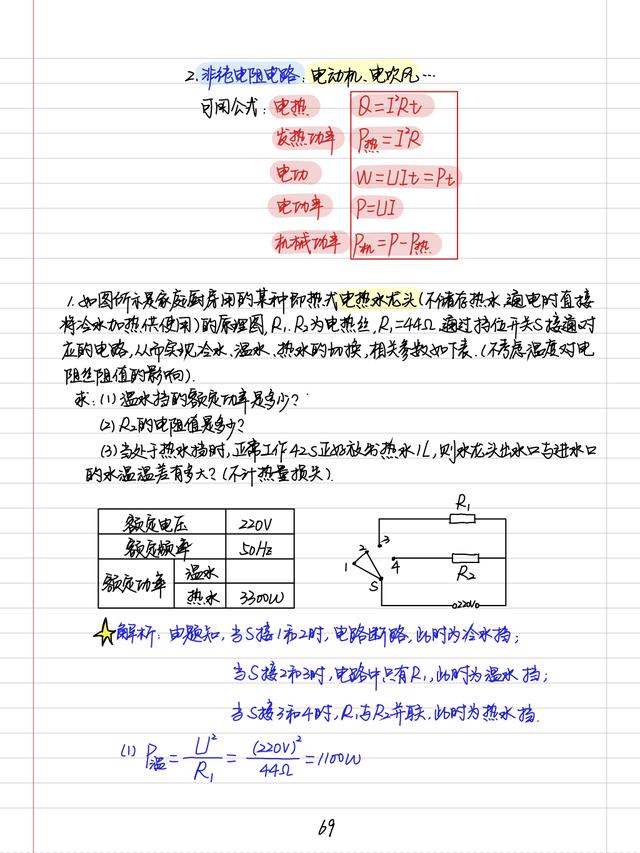 2.非纯电阻电路：电动机、电吹风…
可用公式：电热 Q=I²Rt
发热功率 P热=I²R
电功 W=UIt=Pt
电功率 P=UI
机械功率 P机=P-P热
1.如图所示是家庭厨房用的某种即热式电热水龙头(不储存热水,通电时直接
将冷水加热供使用)的原理图,R₁、R₂为电热丝,R₁=44Ω.通过挡位开关S接通对
应的电路,从而实现冷水、温水、热水的切换,相关参数如下表.(不考虑温度对电
阻丝阻值的影响).
求:(1)温水挡的额定功率是多少?
(2)R₂的电阻值是多少?
(3)当处于热水挡时,正常工作42S正好放出热水1L,则水龙头出水口与进水口
的水温温差有多大?(不计热量损失).
额定电压 220V
额定频率 50Hz
额定功率 温水
热水 3300W
R₁
2 3
1 4
R₂
S
220V
解析：由题知,当S接1和2时,电路断路,此时为冷水挡;
当S接2和3时,电路中只有R₁,此时为温水挡;
当S接3和4时,R₁与R₂并联,此时为热水挡.
(1) P温=U²/R₁=(220V)²/44Ω=1100W
69